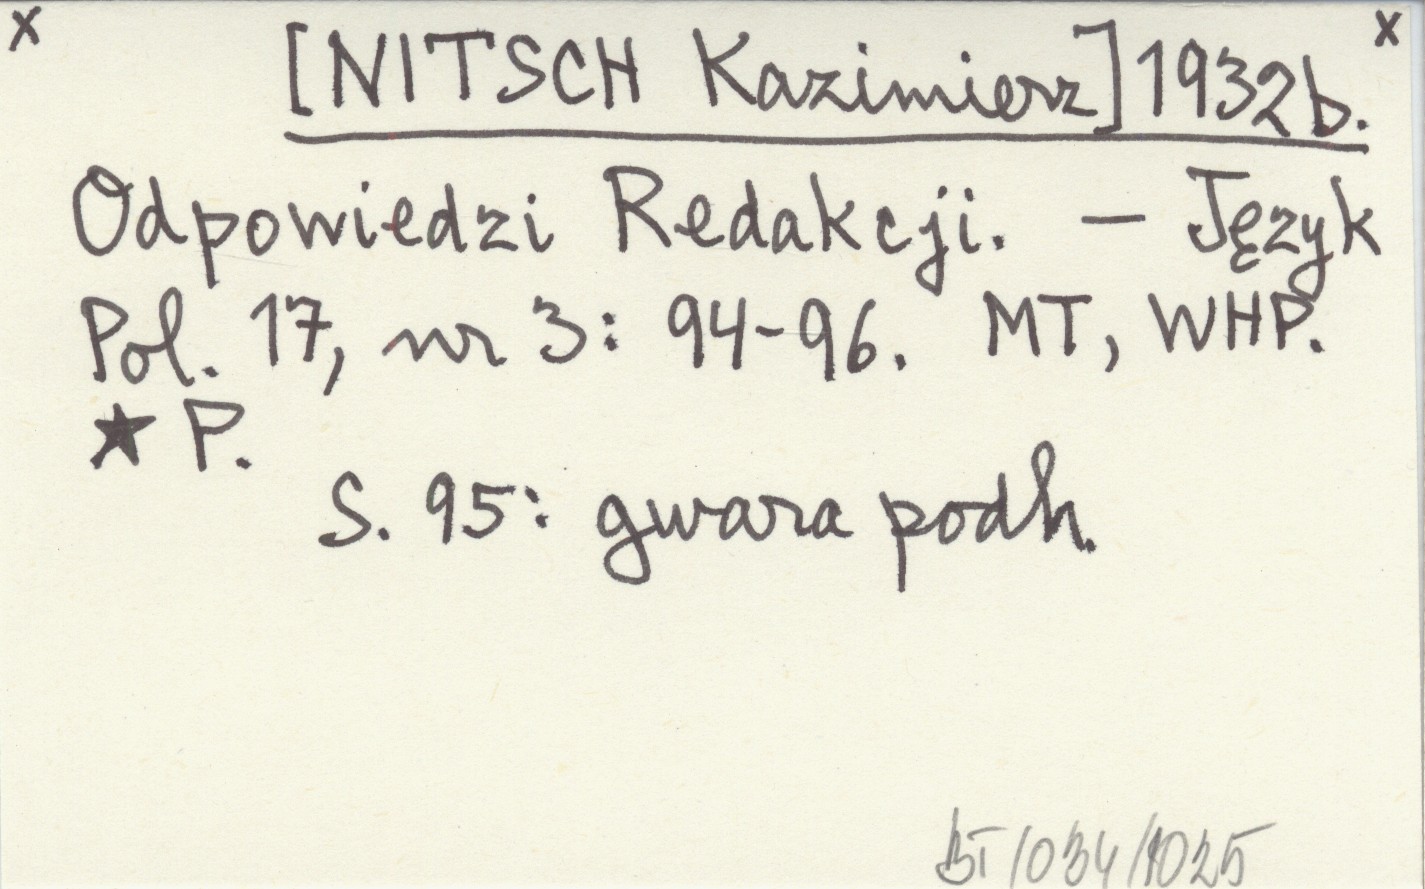 x x
[NITSCH Kazimierz] 1932b.
Odpowiedzi Redakcji. — Język
Pol. 17, nr 3: 94-96. MT, WHP.
★ P.
S. 95: gwara podh.
BT/034/1025